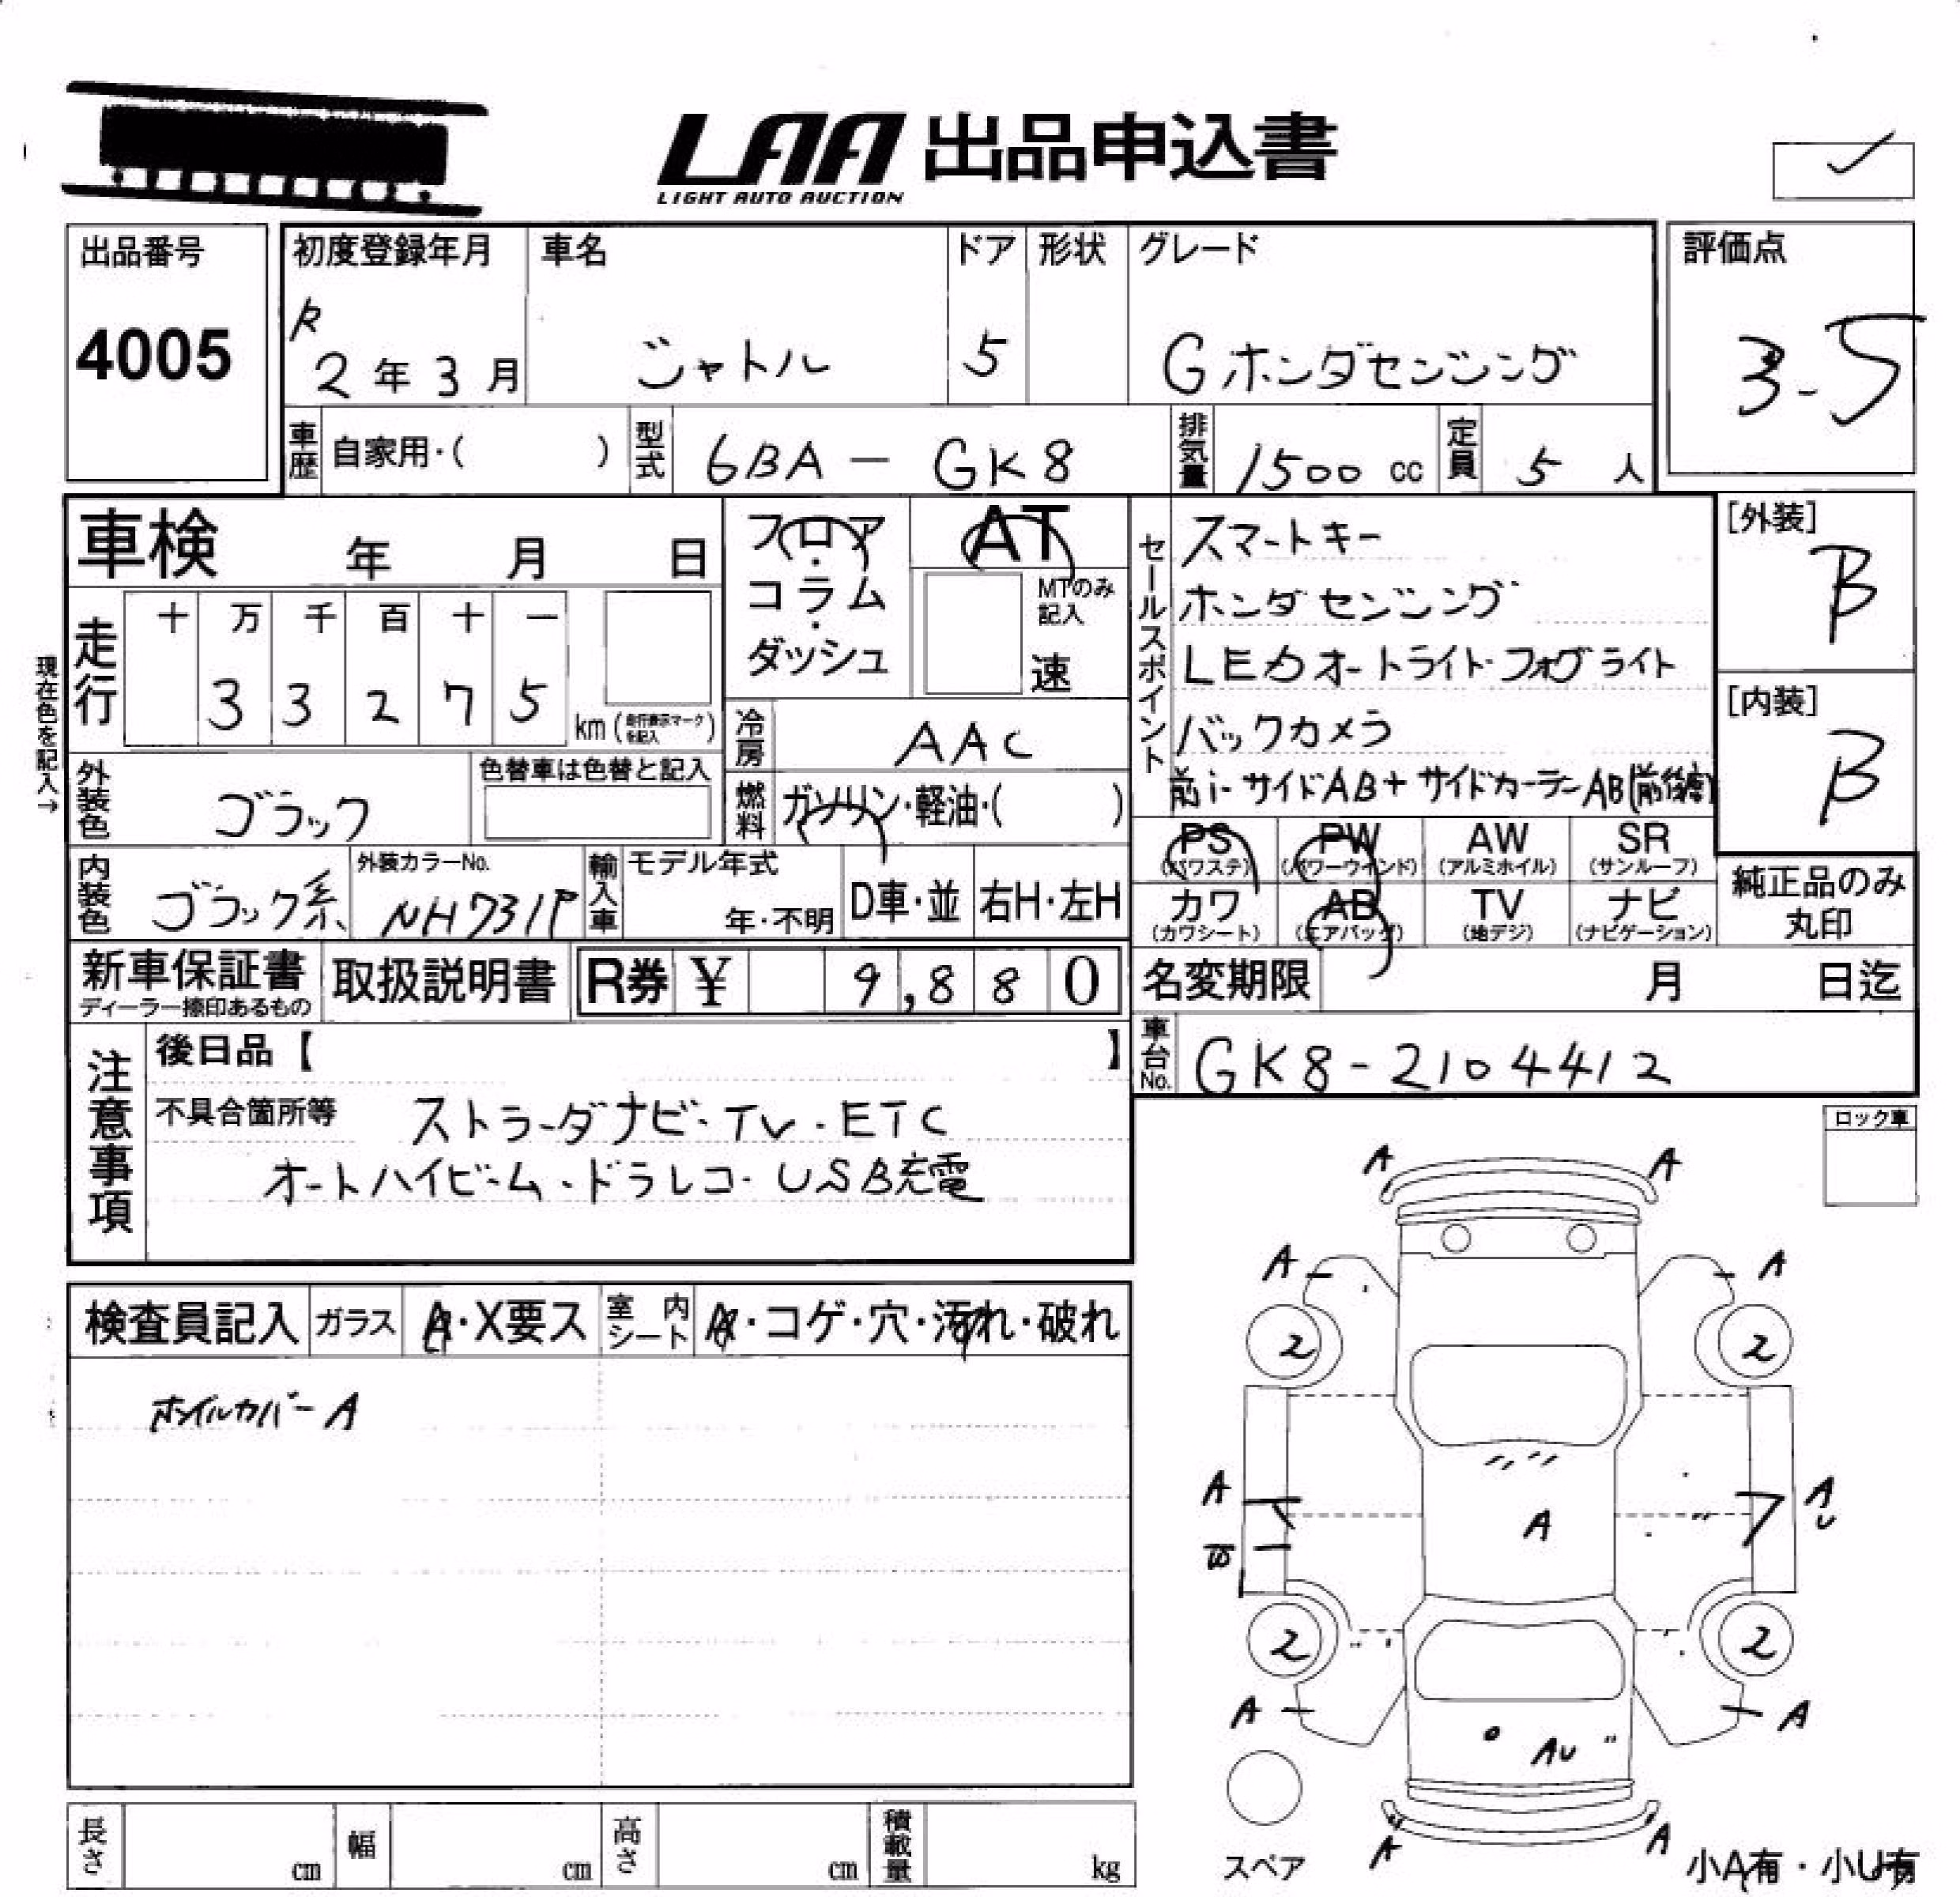 LAA 出品申込書
LIGHT AUTO AUCTION
出品番号
4005
初度登録年月
R
2年3月
車名
シャトル
ドア
5
形状
グレード
Gホンダセンシング
評価点
3.5
車歴
自家用・( )
型式
6BA - GK8
排気量
1500 cc
定員
5 人
車検 年 月 日
フロア・コラム・ダッシュ
AT
MTのみ記入
速
セールスポイント
スマートキー
ホンダセンシング
LEDオートライト・フォグライト
バックカメラ
前i-サイドAB+サイドカーテンAB(前後席)
[外装]
B
[内装]
B
現在色を記入→
走行
十 万 千 百 十 一
3 3 2 7 5
km (走行表示マークを記入)
冷房
AAC
外装色
ブラック
色替車は色替と記入
燃料
ガソリン・軽油・( )
PS
(パワステ)
PW
(パワーウインド)
AW
(アルミホイル)
SR
(サンルーフ)
カワ
(カワシート)
AB
(エアバッグ)
TV
(地デジ)
ナビ
(ナビゲーション)
純正品のみ
丸印
内装色
ブラック系
外装カラーNo.
NH731P
輸入車
モデル年式
年・不明
D車・並
右H・左H
新車保証書
ディーラー捺印あるもの
取扱説明書
R券 ¥ 9,880
名変期限 月 日迄
注意事項
後日品【 】
不具合箇所等 ストラーダナビ・TV・ETC
オートハイビーム・ドラレコ・USB充電
車台No.
GK8-2104412
ロック車
検査員記入
ガラス
A・X要ス
室内シート
A・コゲ・穴・汚れ・破れ
ホイルカバーA
A A
A A
2 2
A A
U
A
2 2
A A
AU
A A
スペア
小A有・小U有
長さ cm
幅 cm
高さ cm
積載量 kg